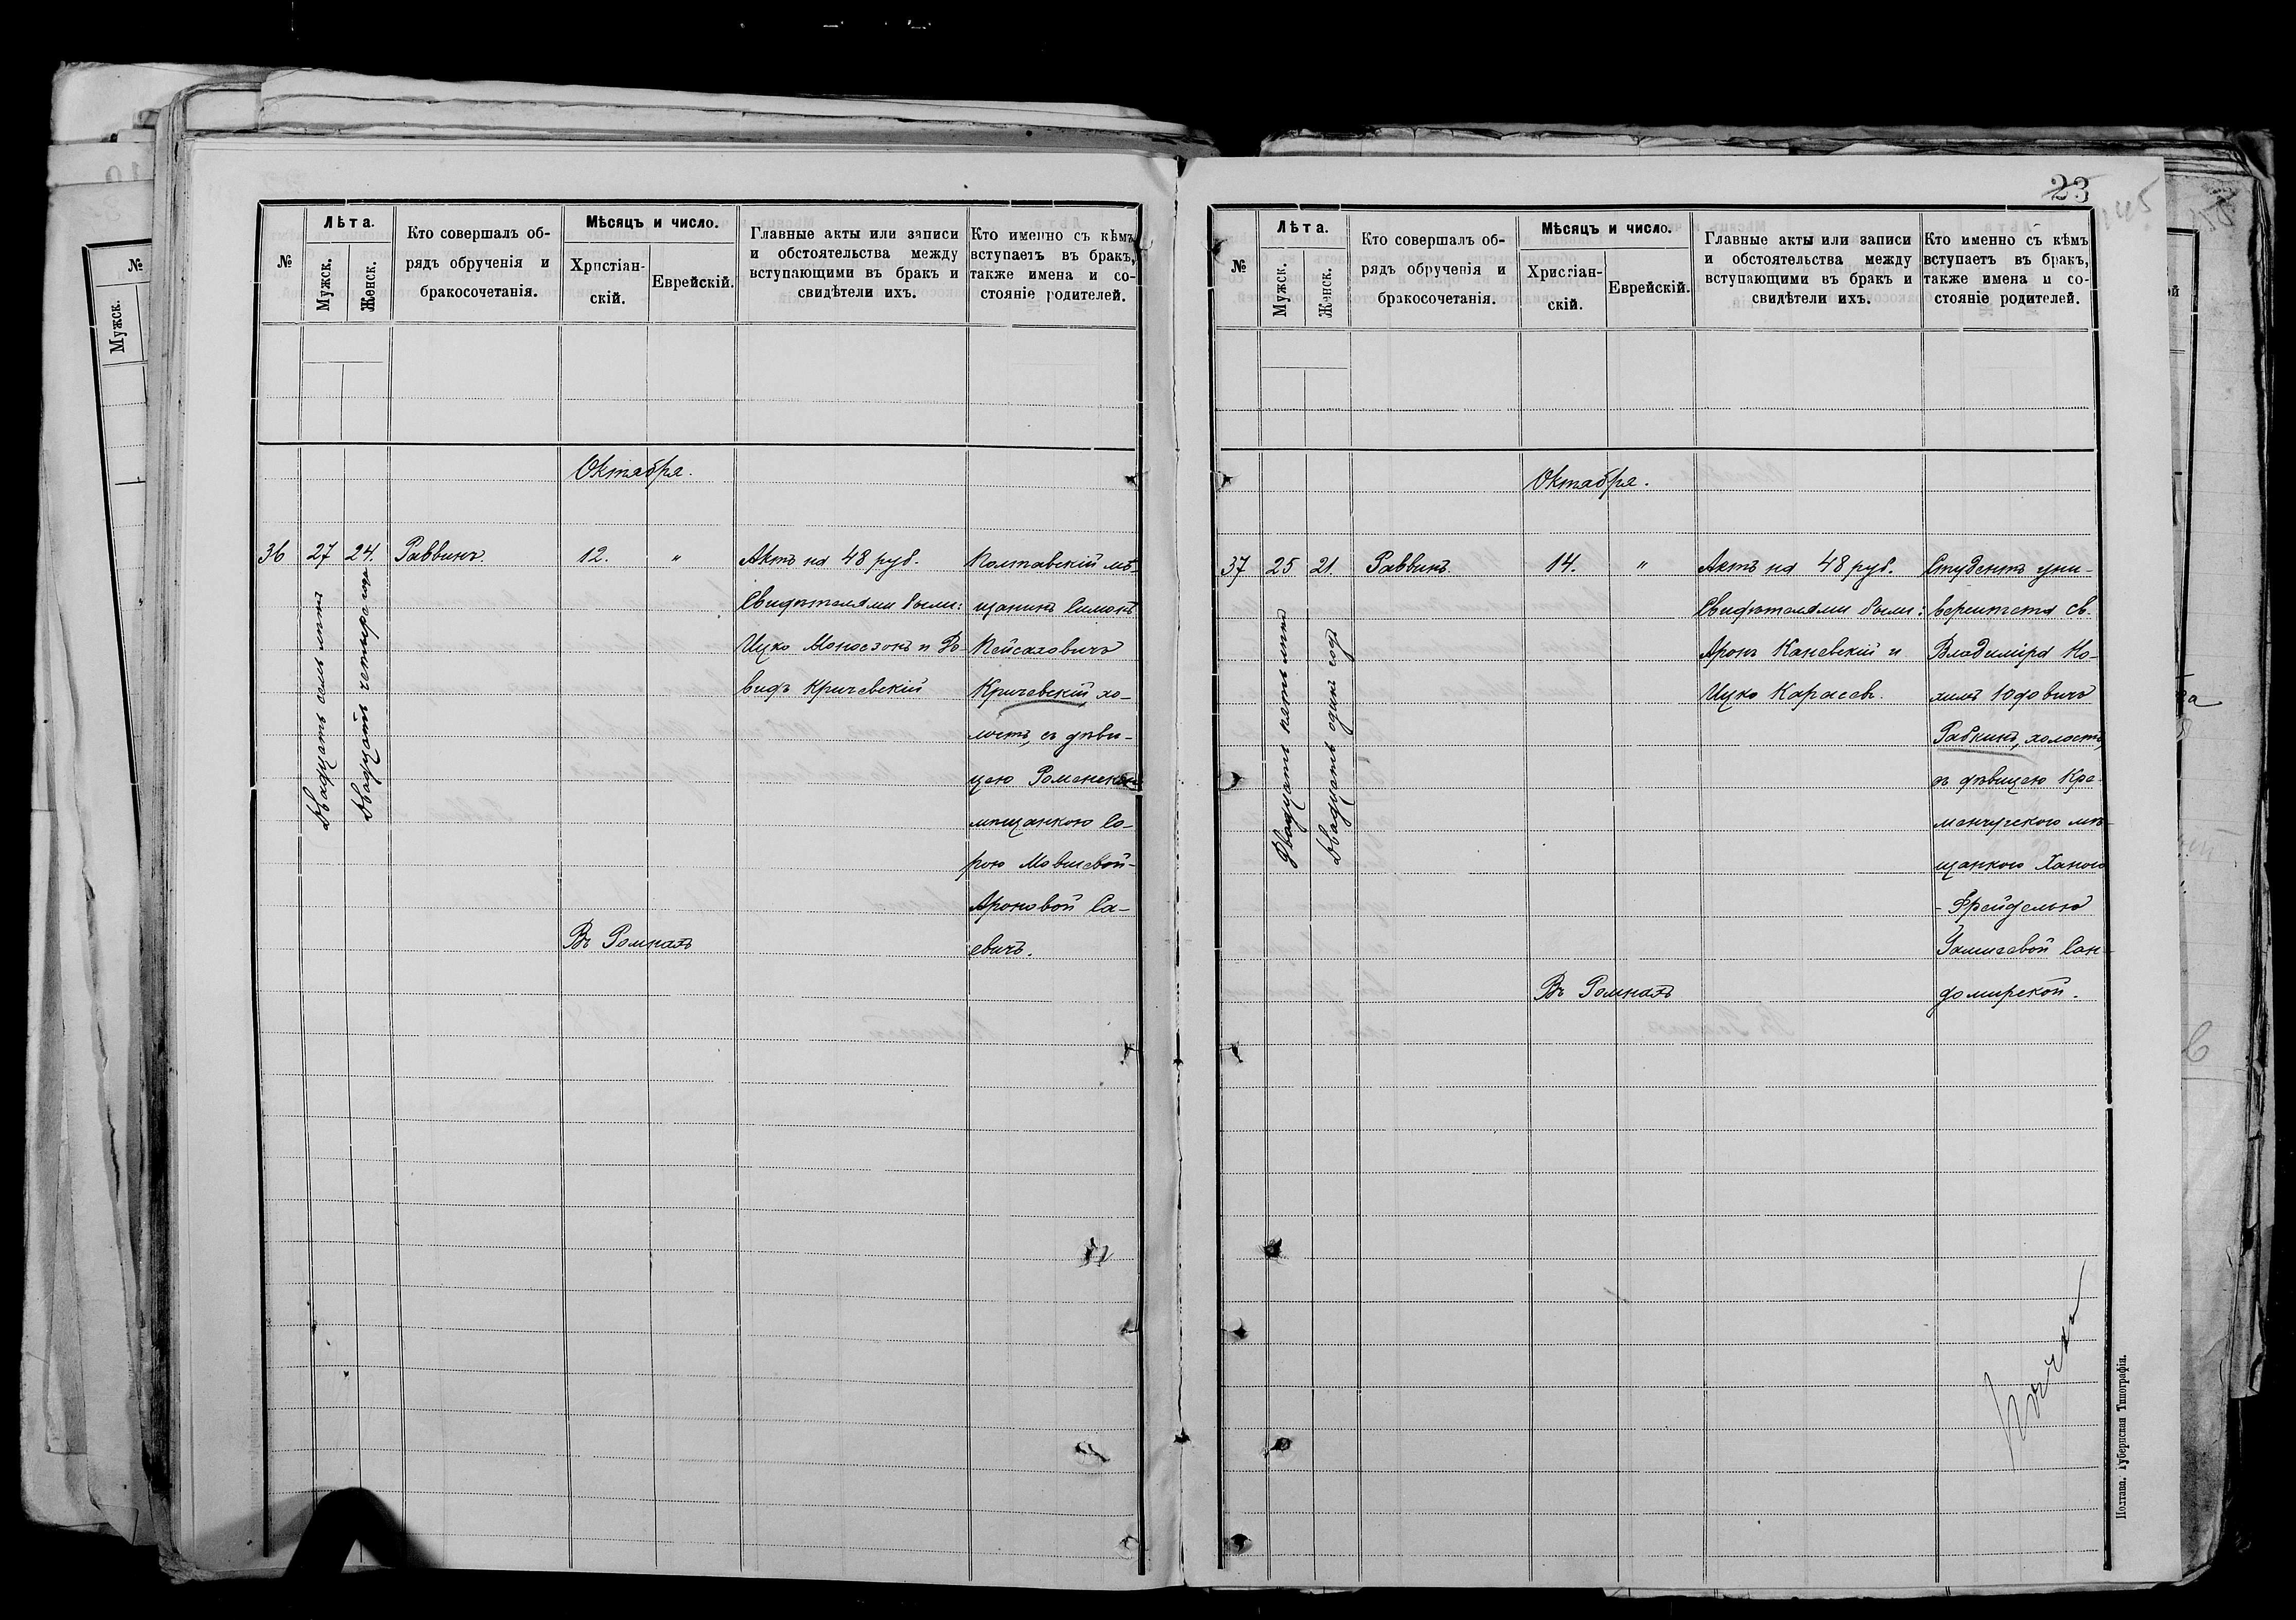 №
Лѣта.
Мужск.
Женск.
Кто совершалъ об-
рядъ обрученія и
бракосочетанія.
Мѣсяцъ и число.
Христіан-
скій.
Еврейскій.
Главные акты или записи
и обстоятельства между
вступающими въ бракъ и
свидѣтели ихъ.
Кто именно съ кѣмъ
вступаетъ въ бракъ,
также имена и со-
стояніе родителей.
Октября.
36
27
24.
Двадцать семь лѣтъ
Двадцать четыре года
Раввинъ.
12.
"
Въ Ромнахъ
Актъ на 48 руб.
Свидѣтелями были:
Ицко Моносзонъ и Да-
видъ Кричевскій
Полтавскій мѣ-
щанинъ Симонъ
Пейсаховичъ
Кричевскій хо-
лостъ, съ дѣви-
цею Роменскою
мѣщанкою Са-
рою Мовшевой-
Ароновой Са-
евичъ.
23
145
№
Лѣта.
Мужск.
Женск.
Кто совершалъ об-
рядъ обрученія и
бракосочетанія.
Мѣсяцъ и число.
Христіан-
скій.
Еврейскій.
Главные акты или записи
и обстоятельства между
вступающими въ бракъ и
свидѣтели ихъ.
Кто именно съ кѣмъ
вступаетъ въ бракъ,
также имена и со-
стояніе родителей.
Октября.
37
25
21.
Двадцать пять лѣтъ
Двадцать одинъ годъ
Раввинъ.
14.
"
Въ Ромнахъ
Актъ на 48 руб.
Свидѣтелями были:
Аронъ Каневскій и
Ицко Карасев.
Студентъ уни-
верситета св.
Владиміра Но-
химъ Юдовичъ
Рабкинъ, холостъ,
съ дѣвицею Кре-
менчугскою мѣ-
щанкою Ханою
-Фрейделью
Залмевой Сан-
домирской.
Полтава. Губернская Типографія.
№
Мужск.